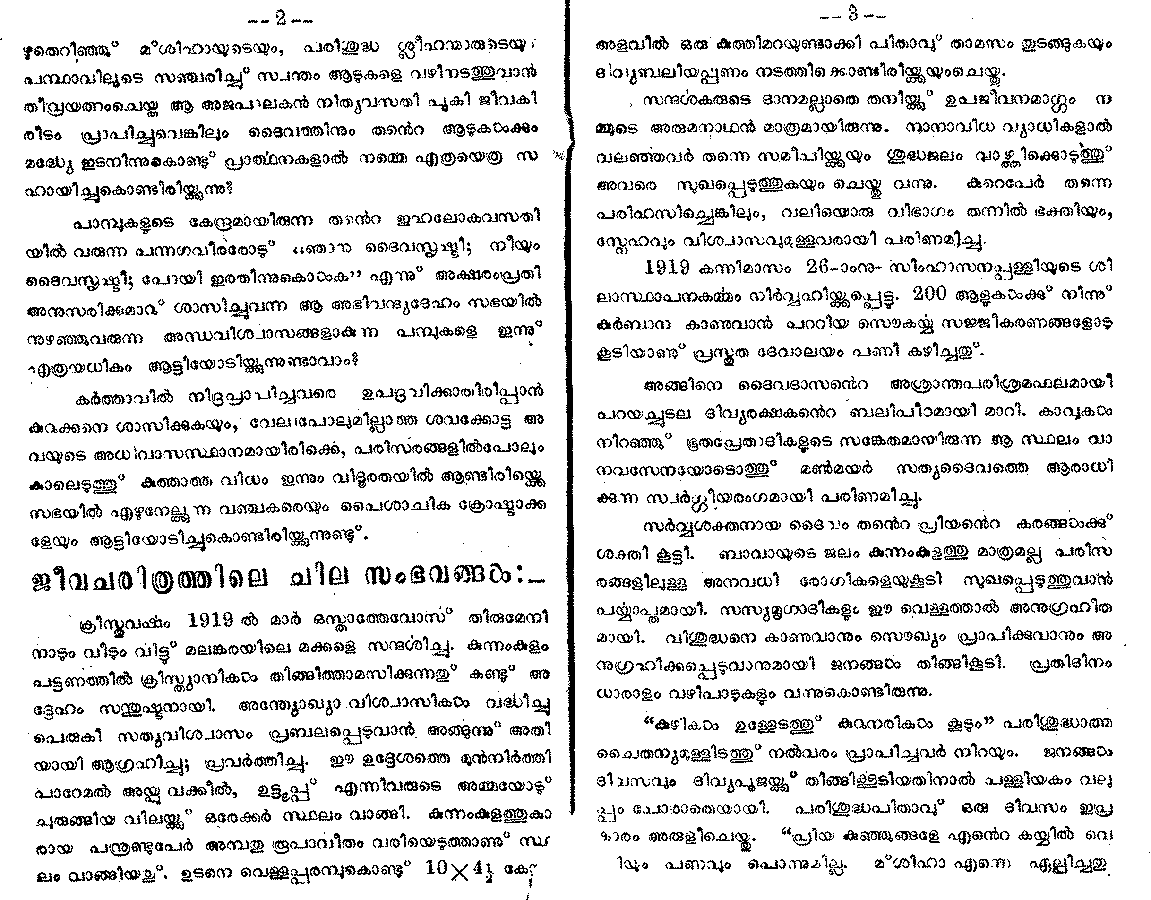 --2--
ഴുതെറിഞ്ഞു് മ്ശിഹായുടെയും, പരിശുദ്ധ ശ്ലീഹന്മാരുടെയും
പന്ഥാവിലൂടെ സഞ്ചരിച്ചു് സ്വന്തം ആടുകളെ വഴിനടത്തുവാൻ
തീവ്രയത്നംചെയ്ത ആ അജപാലകൻ നിത്യവസതി പൂകി ജീവകി
രീടം പ്രാപിച്ചുവെങ്കിലും ദൈവത്തിനും തൻെറ ആടുകൾക്കും
മദ്ധ്യേ ഇടനിന്നുകൊണ്ടു് പ്രാത്ഥനകളാൽ നമ്മെ എത്രയെത്ര സ
ഹായിച്ചുകൊണ്ടിരിയ്ക്കുന്നു?
പാമ്പുകളുടെ കേന്ദ്രമായിരുന്ന തൻെറ ഇഹലോകവസതി
യിൽ വരുന്ന പന്നഗവീരരോടു് “ഞാനു ദൈവസൃഷ്ടി; നീയും
ദൈവസൃഷ്ടി; പോയി ഇരതിന്നുകൊൾക” എന്നു് അക്ഷരംപ്രതി
അനുസരിക്കുമാറു് ശാസിച്ചുവന്ന ആ അഭിവന്ദ്യദേഹം സഭയിൽ
നുഴഞ്ഞുവരുന്ന അന്ധവിശ്വാസങ്ങളാകുന്ന പമ്പുകളെ ഇന്നു്
എത്രയധികം ആട്ടിയോടിയ്ക്കുന്നുണ്ടാവാം?
കർത്താവിൽ നിദ്രപ്രാപിച്ചവരെ ഉപദ്രവിക്കാതിരിപ്പാൻ
കുറുക്കനെ ശാസിക്കുകയും, വേലിപോലുമില്ലാത്ത ശവക്കോട്ട അ
വയുടെ അധിവാസസ്ഥാനമായിരിക്കെ, പരിസരങ്ങളിൽപോലും
കാലെടുത്തു് കുത്താത്ത വിധം ഇന്നും വിദൂരതയിൽ ആണ്ടിരിയ്ക്കെ
സഭയിൽ എഴുനേല്ക്കുന്ന വഞ്ചകരെയും പൈശാചിക ക്രോഷ്ടാക്ക
ളേയും ആട്ടിയോടിച്ചുകൊണ്ടിരിയ്ക്കുന്നുണ്ടു്.
ജീവചരിത്രത്തിലെ ചില സംഭവങ്ങൾ:—
ക്രിസ്തുവഷം 1919 ൽ മാർ ഒസ്താത്തേവോസ് തിരുമേനി
നാടും വീടും വിട്ടു് മലങ്കരയിലെ മക്കളെ സന്ദശിച്ചു. കുന്നംകുളം
പട്ടണത്തിൽ ക്രിസ്ത്യാനികൾ തിങ്ങിത്താമസിക്കുന്നതു് കണ്ടു് അ
ദ്ദേഹം സന്തുഷ്ടനായി. അന്ത്യോഖ്യാ വിശ്വാസികൾ വദ്ധിച്ചു
പെരുകി സത്യവിശ്വാസം പ്രബലപ്പെടുവാൻ അങ്ങുന്നു് അതി
യായി ആഗ്രഹിച്ചു; പ്രവർത്തിച്ചു. ഈ ഉദ്ദേശത്തെ മുൻനിർത്തി
പാറേമൽ അയ്പു വക്കീൽ, ഉട്ടൂപ്പു് എന്നിവരുടെ അമ്മയോടു്
ചുരുങ്ങിയ വിലയ്ക്കു് ഒരേക്കർ സ്ഥലം വാങ്ങി. കുന്നംകുളത്തുകാ
രായ പന്ത്രണ്ടുപേർ അമ്പതു രൂപാവീതം വരിയെടുത്താണു് സ്ഥ
ലം വാങ്ങിയതു്. ഉടനെ വെള്ളപ്പരമ്പുകൊണ്ടു് 10×4½ കോ
--3--
അളവിൽ ഒരു കുത്തിമറയുണ്ടാക്കി പിതാവു് താമസം തുടങ്ങുകയും
ദിവ്യബലിയപ്പണം നടത്തിക്കൊണ്ടിരിയ്ക്കയുംചെയ്തു.
സന്ദശകരുടെ ദാനമല്ലാതെ തനിയ്ക്കു് ഉപജീവനമാഗ്ഗം ന
മ്മുടെ അരുമനാഥൻ മാത്രമായിരുന്നു. നാനാവിധ വ്യാധികളാൽ
വലഞ്ഞവർ തന്നെ സമീപിയ്ക്കയും ശുദ്ധജലം വാഴ്ത്തിക്കൊടുത്തു്
അവരെ സുഖപ്പെടുത്തുകയും ചെയ്തു വന്നു. കുറെപേർ തന്നെ
പരിഹസിച്ചെങ്കിലും, വലിയൊരു വിഭാഗം തന്നിൽ ഭക്തിയും,
സ്നേഹവും വിശ്വാസവുമുള്ളവരായി പരിണമിച്ചു.
1919 കന്നിമാസം 26-ാംനു- സിംഹാസനപ്പള്ളിയുടെ ശി
ലാസ്ഥാപനകമ്മം നിർവ്വഹിയ്ക്കപ്പെട്ടു. 200 ആളുകൾക്കു് നിന്നു്
കുർബാന കാണുവാൻ പററിയ സൌകര്യ സജ്ജീകരണങ്ങളോടു
കൂടിയാണു് പ്രസ്തുത ദേവാലയം പണി കഴിച്ചതു്.
അങ്ങിനെ ദൈവദാസൻെറ അശ്രാന്തപരിശ്രമഫലമായി
പറയച്ചുടല ദിവ്യരക്ഷകൻെറ ബലിപീഠമായി മാറി. കാവുകൾ
നിറഞ്ഞു് ഭൂതപ്രേതാദികളുടെ സങ്കേതമായിരുന്ന ആ സ്ഥലം വാ
നവസേനയോടൊത്തു് മൺമയർ സത്യദൈവത്തെ ആരാധി
ക്കുന്ന സ്വർഗ്ഗീയരംഗമായി പരിണമിച്ചു.
സർവ്വശക്തനായ ദൈവം തൻെറ പ്രിയൻെറ കരങ്ങൾക്കു്
ശക്തി കൂട്ടി. ബാവായുടെ ജലം കുന്നംകുളത്തു മാത്രമല്ല പരിസ
രങ്ങളിലുള്ള അനവധി രോഗികളെയുംകൂടി സുഖപ്പെടുത്തുവാൻ
പര്യാപ്തമായി. സസ്യമൃഗാദികളും ഈ വെള്ളത്താൽ അനുഗ്രഹീത
മായി. വിശുദ്ധനെ കാണുവാനും സൌഖ്യം പ്രാപിക്കുവാനും അ
നുഗ്രഹിക്കപ്പെടുവാനുമായി ജനങ്ങൾ തിങ്ങികൂടി. പ്രതിദിനം
ധാരാളം വഴിപാടുകളും വന്നുകൊണ്ടിരുന്നു.
“കുഴികൾ ഉള്ളേടത്തു് കുറുനരികൾ കൂടും” പരിശുദ്ധാത്മ
ചൈതന്യമുള്ളിടത്തു് നൽവരം പ്രാപിച്ചവർ നിറയും. ജനങ്ങൾ
ദിവസവും ദിവ്യപൂജയ്ക്കു് തിങ്ങിക്കൂടിയതിനാൽ പള്ളിയകം വലു
പ്പം പോരാതെയായി. പരിശുദ്ധപിതാവു് ഒരു ദിവസം ഇപ്ര
കാരം അരുളിചെയ്തു. “പ്രിയ കുഞ്ഞുങ്ങളേ എൻെറ കയ്യിൽ വെ
ള്ളിയും പണവും പൊന്നുമില്ല. മ്ശിഹാ എന്നെ ഏല്പിച്ചതു